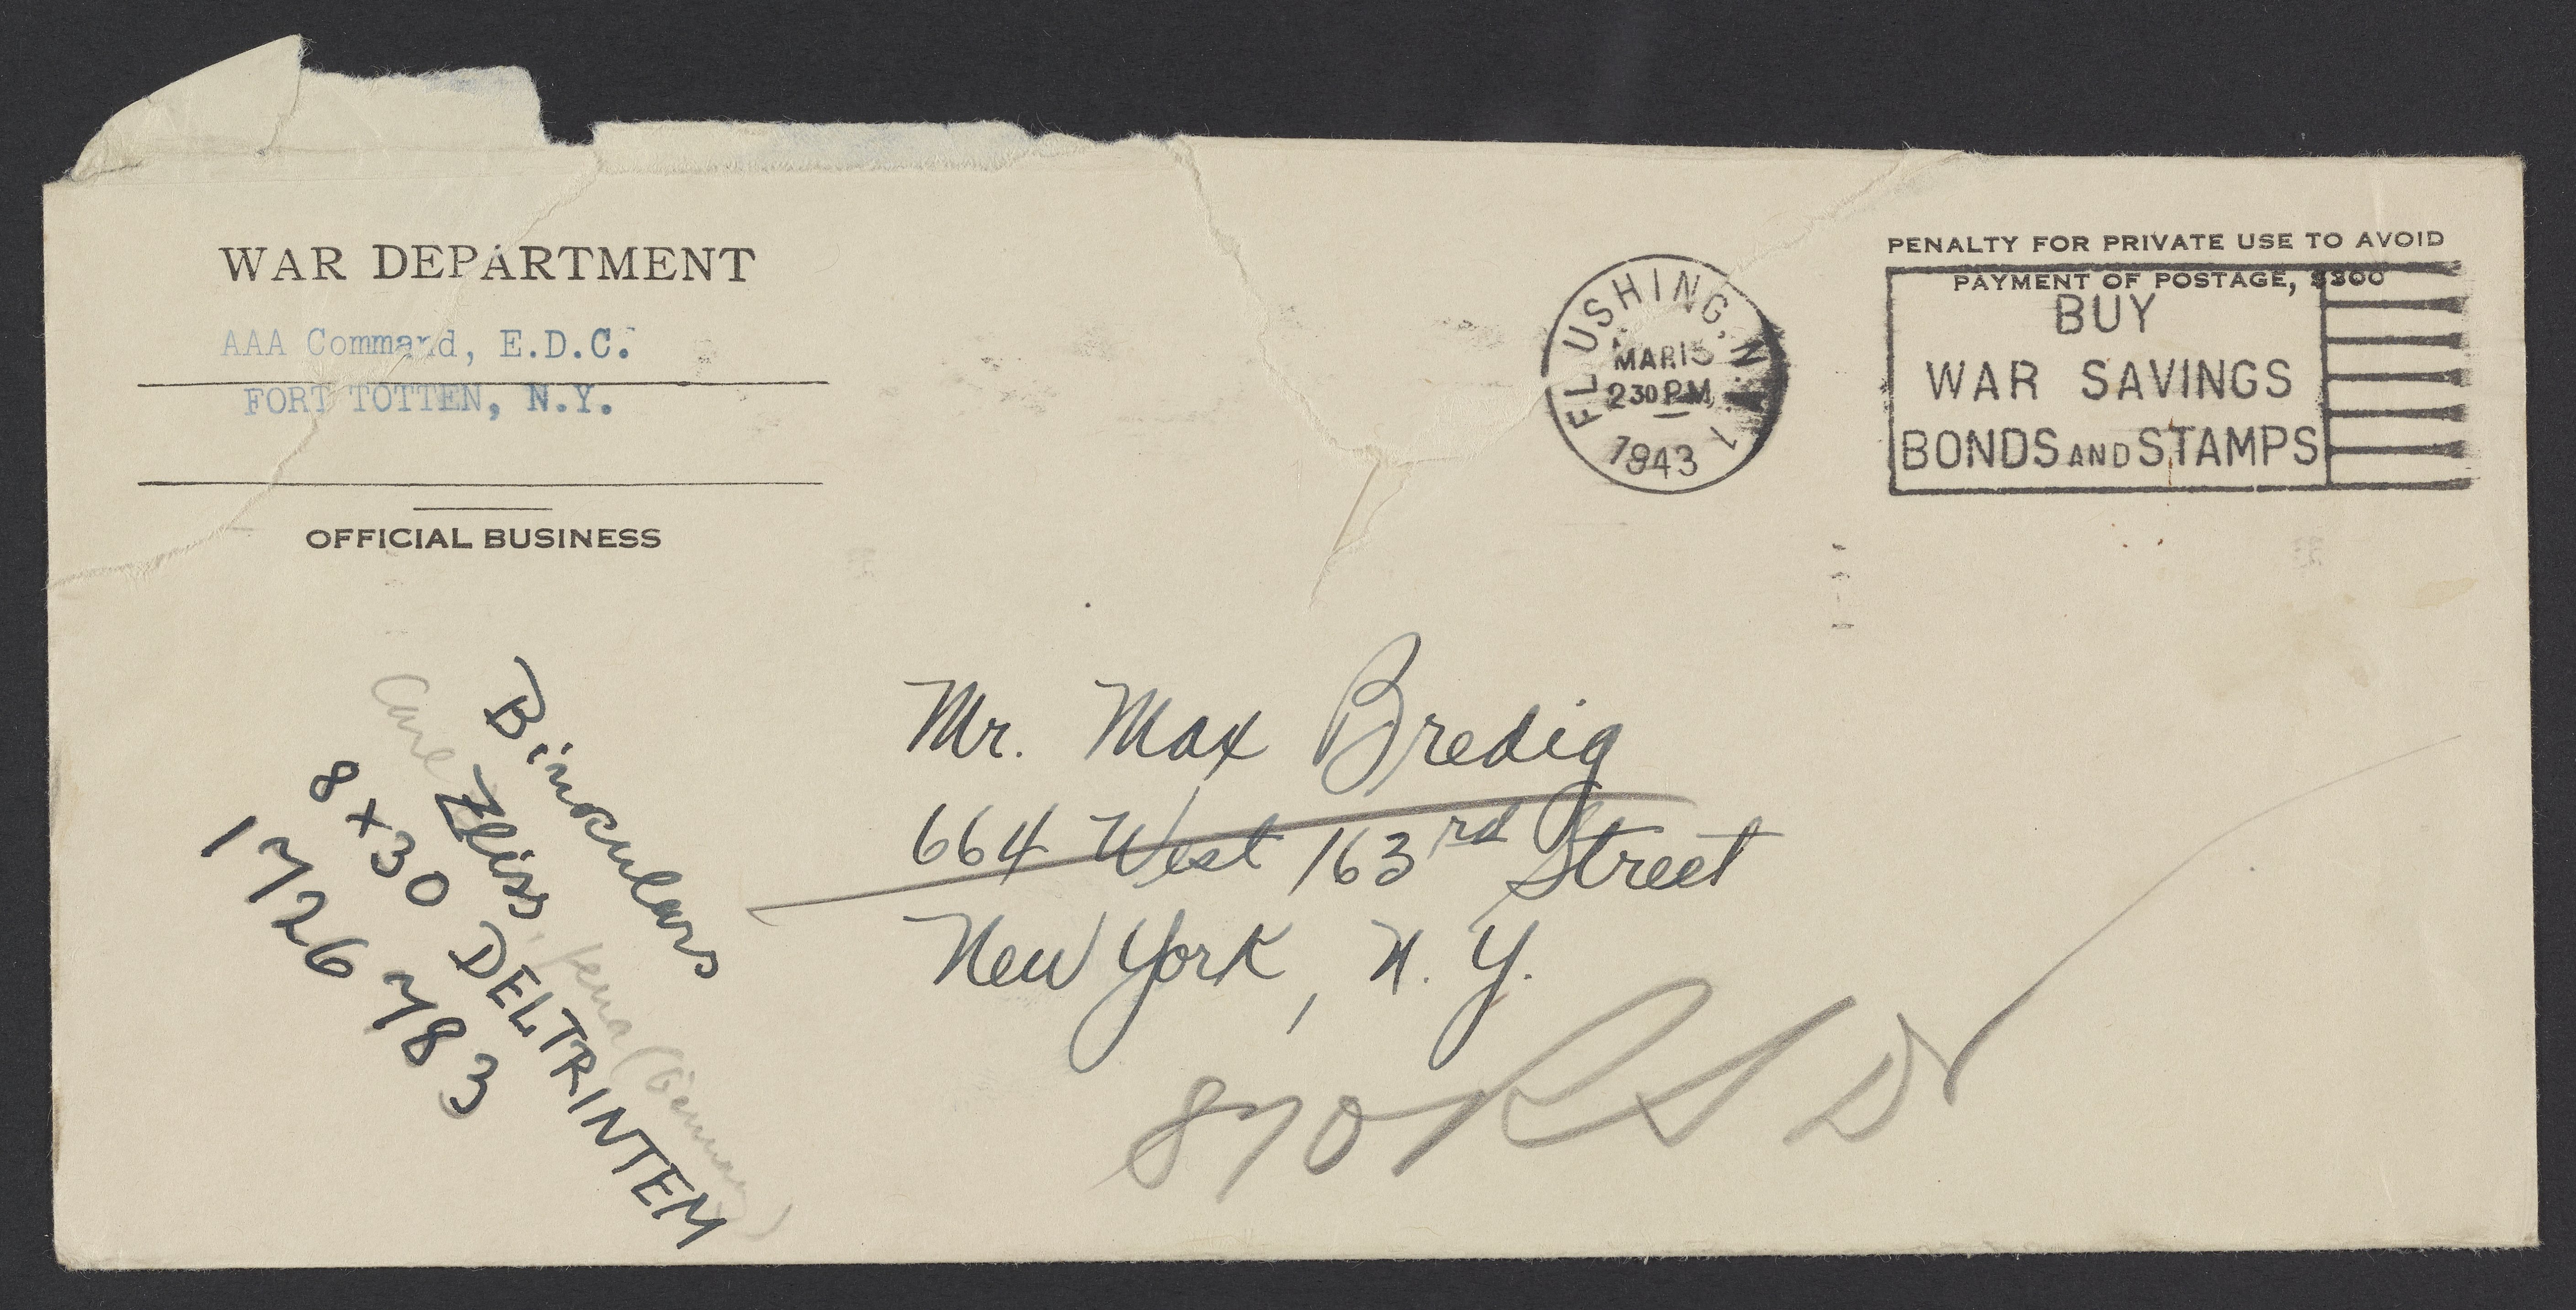 WAR DEPARTMENT
AAA Command, E.D.C.
FORT TOTTEN, N.Y.
OFFICIAL BUSINESS
FLUSHING, N.Y. 1
MAR 15
2 30 PM
1943
PENALTY FOR PRIVATE USE TO AVOID
PAYMENT OF POSTAGE, $300
BUY
WAR SAVINGS
BONDS AND STAMPS
Mr. Max Bredig
664 West 163rd Street
New York, N.Y.
Binoculars
Carl Zeiss, Jena (Germany)
8x30 DELTRINTEM
1726783